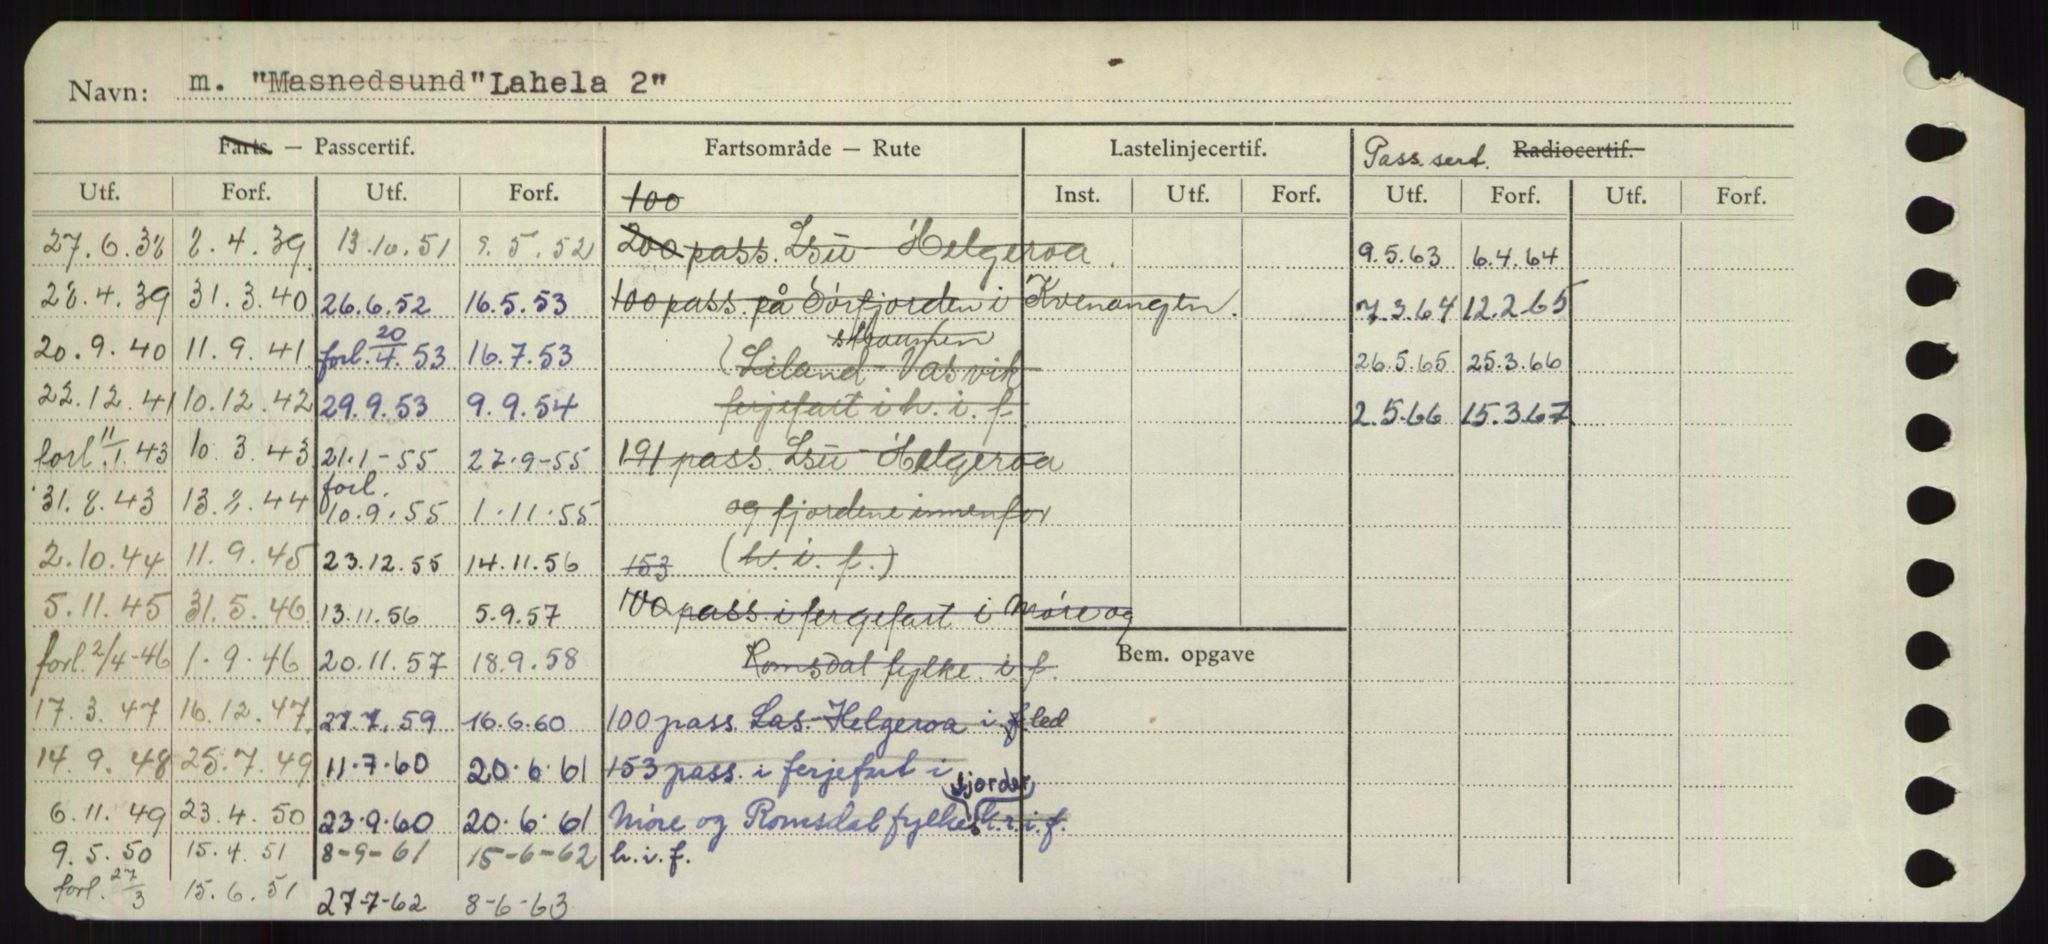 Navn: m. "Masnedsund" Lahela 2"
Farts. — Passcertif. Fartsområde — Rute Lastelinjecertif. Pass. sert. Radiocertif.
Utf. Forf. Utf. Forf. 100 Inst. Utf. Forf. Utf. Forf. Utf. Forf.
27.6.38 8.4.39 13.10.51 9.5.52 200 pass. Lsū - Helgeroa. 9.5.63 6.4.64
28.4.39 31.3.40 26.6.52 16.5.53 100 pass. på Sörfjorden i Kvenangen. 7.3.64 12.2.65
20.9.40 11.9.41 forl. 20/4.53 16.7.53 Liland - Vasvik 26.5.65 25.3.66
22.12.41 10.12.42 29.9.53 9.9.54 ferjefart i h.i.f. 2.5.66 15.3.67
forl. 11/1.43 10.3.43 21.1-55 27.9-55 191 pass. Lsū - Helgeroa
31.8.43 13.8.44 forl. 10.9.55 1.11.55 og fjordene innenfor
2.10.44 11.9.45 23.12.55 14.11.56 153 (h.i.f.)
5.11.45 31.5.46 13.11.56 5.9.57 100 pass. i fergefart i Møre og
forl. 2/4-46 1.9.46 20.11.57 18.9.58 Romsdal fylke i.f. Bem. opgave
17.3.47 16.12.47 27.7.59 16.6.60 100 pass. Las.-Helgeroa i.f. led
14.9.48 25.7.49 11.7.60 20.6.61 153 pass. i ferjefart i
fjorder
6.11.49 23.4.50 23.9.60 20.6.61 Møre og Romsdal fylkes h.r.i.f.
9.5.50 15.4.51 8-9-61 15-6-62 h.i.f.
forl. 27/3 15.6.51 27-7-62 8-6-63